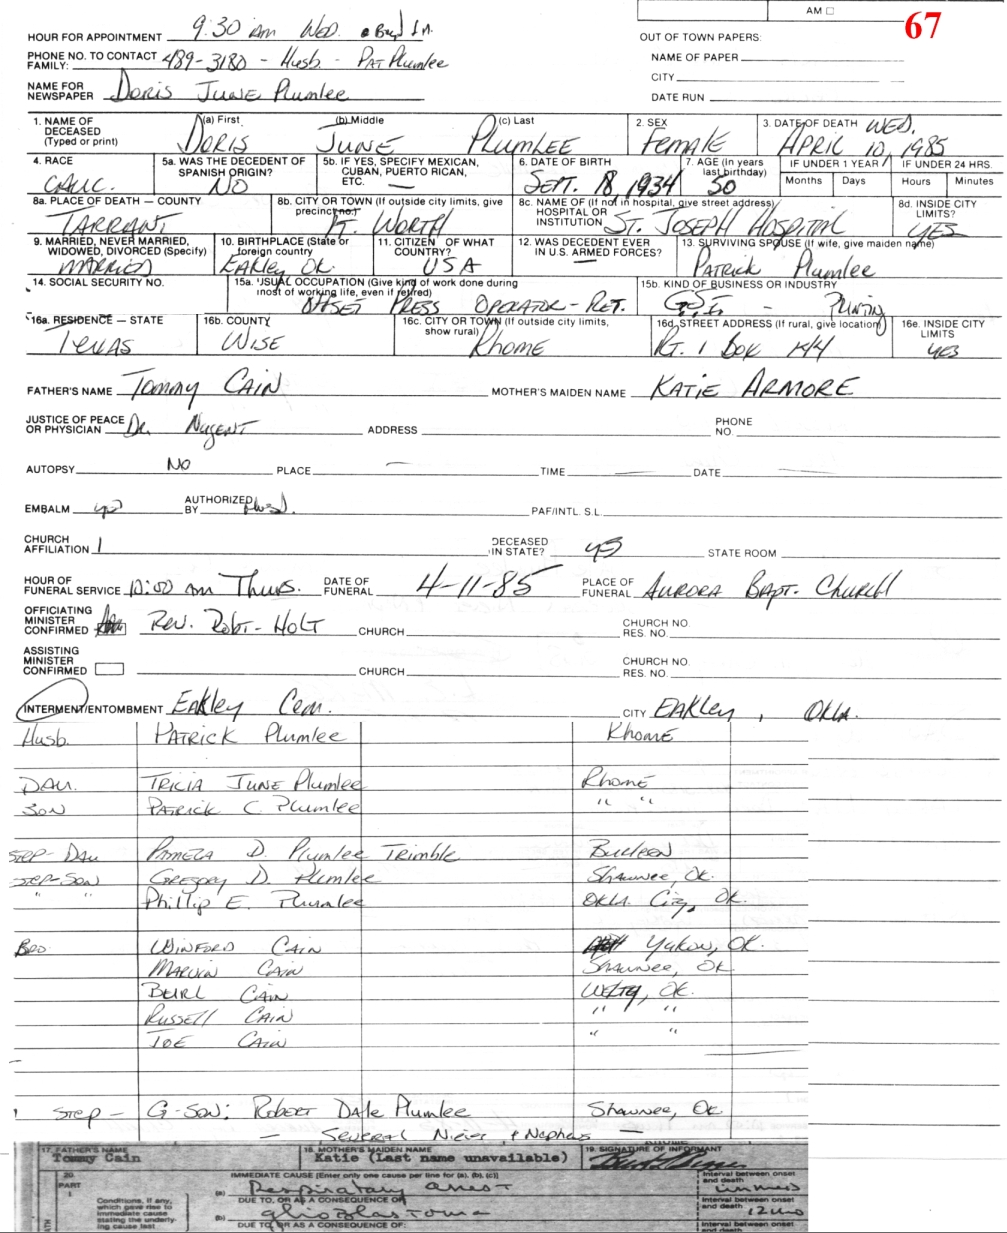 AM □
67
HOUR FOR APPOINTMENT 9:30 am WED.
OUT OF TOWN PAPERS:
PHONE NO. TO CONTACT FAMILY: 489-3180 - Husb. - PAT Plumlee
NAME OF PAPER
CITY
NAME FOR NEWSPAPER DORIS JUNE Plumlee
DATE RUN
1. NAME OF DECEASED (Typed or print) (a) First DORIS (b) Middle JUNE (c) Last PLUMLEE 2. SEX FEMALE 3. DATE OF DEATH WED. APRIL 10, 1985
4. RACE CAUC. 5a. WAS THE DECEDENT OF SPANISH ORIGIN? NO 5b. IF YES, SPECIFY MEXICAN, CUBAN, PUERTO RICAN, ETC. — 6. DATE OF BIRTH SEPT. 18, 1934 7. AGE (in years last birthday) 50 IF UNDER 1 YEAR Months Days IF UNDER 24 HRS. Hours Minutes
8a. PLACE OF DEATH — COUNTY TARRANT 8b. CITY OR TOWN (If outside city limits, give precinct no.) Ft. WORTH 8c. NAME OF (If not in hospital, give street address) HOSPITAL OR INSTITUTION ST. JOSEPH HOSPITAL 8d. INSIDE CITY LIMITS? YES
9. MARRIED, NEVER MARRIED, WIDOWED, DIVORCED (Specify) MARRIED 10. BIRTHPLACE (State or foreign country EAKLEY OK. 11. CITIZEN OF WHAT COUNTRY? USA 12. WAS DECEDENT EVER IN U.S. ARMED FORCES? — 13. SURVIVING SPOUSE (If wife, give maiden name) PATRICK Plumlee
14. SOCIAL SECURITY NO. 15a. USUAL OCCUPATION (Give kind of work done during most of working life, even if retired) OFFSET PRESS OPERATOR - RET. 15b. KIND OF BUSINESS OR INDUSTRY
16a. RESIDENCE — STATE TEXAS 16b. COUNTY WISE 16c. CITY OR TOWN (If outside city limits, show rural) Rhome 16d. STREET ADDRESS (If rural, give location) Rt. 1 BOX 16e. INSIDE CITY LIMITS YES
FATHER'S NAME Tommy CAIN MOTHER'S MAIDEN NAME KATIE ARMORE
JUSTICE OF PEACE OR PHYSICIAN Dr. Nugent ADDRESS PHONE NO.
AUTOPSY NO PLACE — TIME — DATE —
EMBALM yes AUTHORIZED BY PAF/INTL. S.L.
CHURCH AFFILIATION DECEASED IN STATE? yes STATE ROOM
HOUR OF FUNERAL SERVICE 10:00 am Thurs. DATE OF FUNERAL 4-11-85 PLACE OF FUNERAL AURORA BAPT. CHURCH
OFFICIATING MINISTER CONFIRMED Rev. Robt. HOLT CHURCH CHURCH NO. RES. NO.
ASSISTING MINISTER CONFIRMED CHURCH CHURCH NO. RES. NO.
INTERMENT/ENTOMBMENT EAKLEY Cem. CITY EAKLEY, OKLA.
Husb. PATRICK Plumlee Rhome
DAU. TRICIA JUNE Plumlee Rhome
SON PATRICK C. Plumlee " "
STEP-DAU PAMELA D. Plumlee TRIMBLE
STEP-SON GREGORY D. Plumlee Shawnee, OK.
" " Phillip E. Plumlee OKLA. City, OK.
BRO WINFORD CAIN Yukon, OK.
MARVIN CAIN SHAWNEE, OK
BEURL CAIN WELTY, OK.
RUSSELL CAIN " "
JOE CAIN " "
STEP - G-SON: ROBERT DALE Plumlee Shawnee, OK
— SEVERAL NIECES & NEPHEWS —
17. FATHER'S NAME Tommy Cain 18. MOTHER'S MAIDEN NAME Katie (Last name unavailable) 19. SIGNATURE OF INFORMANT
20. PART I IMMEDIATE CAUSE [Enter only one cause per line for (a), (b), (c)]
(a) Respiratory arrest Interval between onset and death
Conditions, if any, which gave rise to immediate cause stating the underlying cause last
DUE TO, OR AS A CONSEQUENCE OF
(b) glioblastoma Interval between onset and death 12 mo
DUE TO, OR AS A CONSEQUENCE OF: Interval between onset and death